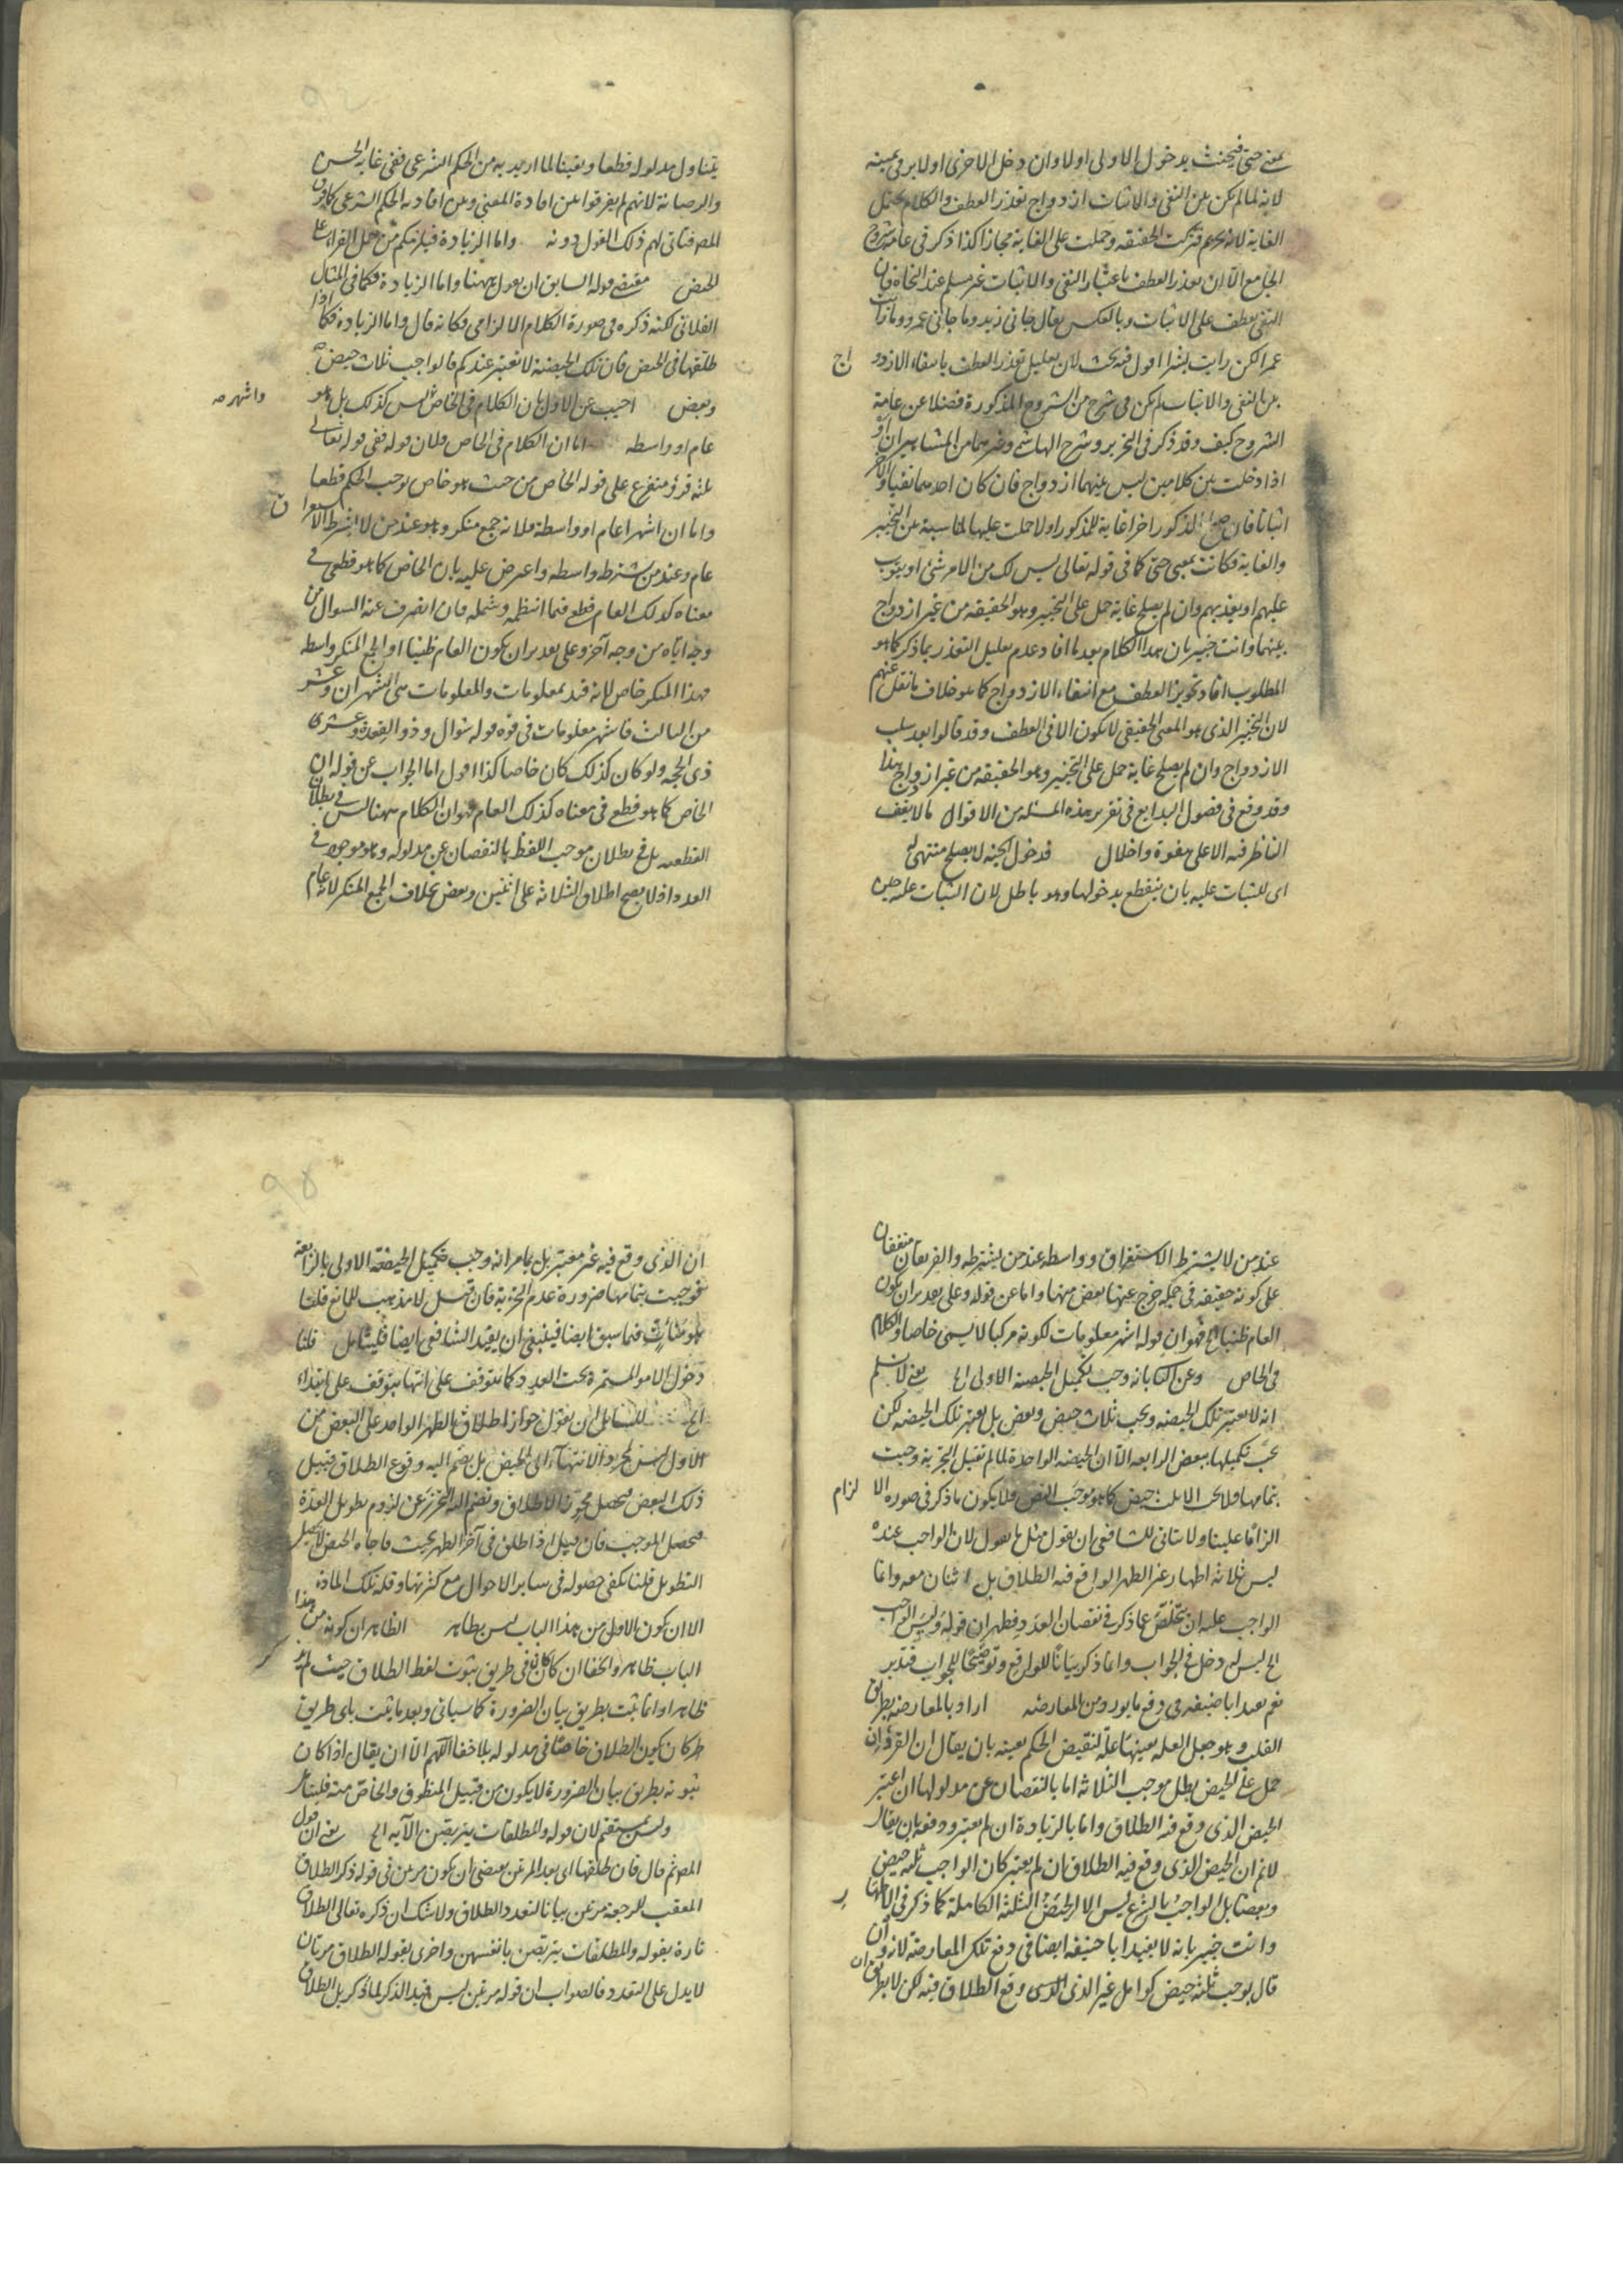 بمعنى حتى فيحنث بدخول الاولى اولا وان دخل الاخرى اولا بر في يمينه
لانه لما لم يكن بين النفي والاثبات ازدواج تعذر العطف والكلام يحتمل
الغاية لانه تحريم فتركت الحقيقة وحملت على الغاية مجازا كذا ذكر في عامة شروح
الجامع الا ان تعذر العطف باعتبار النفي والاثبات غير مسلم عند النحاة فان
النفي يعطف على الاثبات وبالعكس يقال جاني زيد وما جاني عمرو وما رايت
عمرا لكن رايت بشرا اقول فيه بحث لان تعليل تعذر العطف بانتفاء الازدو اج
بين النفي والاثبات لم يكن في شرح من الشروح المذكورة فضلا عن عامة
الشروح كيف وقد ذكر في التحرير وشرح الهاشمي وغيرهما من المشاهير ان او
اذا دخلت بين كلامين ليس بينهما ازدواج فان كان احدهما نفيا والاخر
اثباتا فان صلح المذكور اخرا غاية للمذكور اولا حملت عليها لمناسبة بين التخيير
والغاية فكانت بمعنى حتى كما في قوله تعالى ليس لك من الامر شئ او يتوب
عليهم او يعذبهم وان لم يصلح غاية حمل على التخيير وهو الحقيقة من غير ازدواج
بينهما وانت خبير بان هذا الكلام بعدما افاد عدم تعليل التعذر بما ذكر كما هو
المطلوب افاد تجويز العطف مع انتفاء الازدواج كما هو خلاف ما نقل عنهم
لان التخيير الذي هو المعنى الحقيقي لا يكون الا في العطف وقد قالوا بعد سلب
الازدواج وان لم يصلح غاية حمل على التخيير وهو الحقيقة من غير ازدواج هذا
وقد وقع في فصول البدايع في تقرير هذه المسئلة من الاقوال ما لا يقف
الناظر فيه الا على هفوة واخلال فدخول الجنة لا يصلح منتهى له
اى للثبات عليه بان ينقطع بدخولها وهو باطل لان الثبات عليه حين
يتناول مدلوله قطعا ويقينا لما اريد به من الحكم الشرعي ففي غاية الحسن
والرصانة لانهم لم يفرقوا بين افادة المعنى وبين افادته الحكم الشرعي كما فرق
المص فتاتى لهم ذلك القول دونه واما الزيادة فيلزمكم من حمل القراء على
الحيض مقتضى قوله السابق ان يقول ههنا واما الزيادة فكما في المثال
الفلاني لكنه ذكره في صورة الكلام الالزامي فكانه قال واما الزيادة فكما اذا
طلقها في الحيض فان تلك الحيضة لا تعتبر عندكم فالواجب ثلاث حيض
وبعض اجيب عن الاول بان الكلام في الخاص واشهر ليس كذلك بل هو
عام او واسطه اما ان الكلام في الخاص فلان قوله ففي قوله تعالى
ثلثة قروء متفرع على قوله الخاص من حيث هو خاص يوجب الحكم قطعا
واما ان اشهرا عام او واسطة فلانه جمع منكر وهو عند من لا يشترط الاستغراق
عام وعند من يشترط واسطه واعترض عليه بان الخاص كما هو قطعي في
معناه كذلك العام قطع فيما انتظمه وشمله فان انصرف عنه السوال من
وجه اتاه من وجه آخر وعلى تقدير ان يكون العام ظنيا او الجمع المنكر واسطه
فهذا المنكر خاص لانه قيد بمعلومات والمعلومات هي الشهران وعشر
من الثالث فاشهر معلومات في قوة قوله شوال وذو القعدة وعشرى
ذى الحجه ولو كان كذلك كان خاصا كذا اقول اما الجواب عن قوله ان
الخاص كما هو قطع في معناه كذلك العام فهو ان الكلام ههنا ليس في بطلان
القطعيه بل في بطلان موجب اللفظ بالنقصان عن مدلوله وهو موجود في
العدد اذ لا يصح اطلاق الثلاثه على اثنين وبعض بخلاف الجمع المنكر لانه عام
عند من لا يشترط الاستغراق وواسطه عند من يشترطه والفريقان متفقان
على كونه حقيقه في جمله خرج عنها بعض منها واما عن قوله وعلى تقدير ان يكون
العام ظنيا الخ فهو ان قوله اشهر معلومات لكونه مركبا لا يسمى خاصا والكلام
في الخاص وعن الثاني بانه وجب تكميل الحيضة الاولى الخ يعني لا نسلم
انه لا تعتبر تلك الحيضه ويجب ثلاث حيض وبعض بل تعتبر تلك الحيضه لكن
يجب تكميلها ببعض الرابعه الا ان الحيضه الواحدة لما لم تقبل التجزية وجبت
بتمامها فلا يجب الا ثلث حيض كما هو موجب النص فلا يكون ما ذكر في صورة الا لزام
الزاما علينا ولا يتاتى للشافعي ان يقول مثل ما نقول لان الواجب عنده
ليس ثلاثه اطهار غير الطهر الواقع فيه الطلاق بل اثنان معه وانما
الواجب عليه ان يتخلص عما ذكر في نقصان العدد فظهر ان قوله وليس الواجب
الخ ليس له دخل في الجواب وانما ذكر بيانا للواقع وتوضيحا للجواب فتدبر
نعم يفيد ابا حنيفه في دفع ما يورد من المعارضه اراد بالمعارضه بطريق
القلب وهو جعل العله بعينها علة لنقيض الحكم بعينه بان يقال ان القرؤ ان
حمل على الحيض بطل موجب الثلاثه اما بالنقصان عن مدلولها ان اعتبر
الحيض الذي وقع فيه الطلاق واما بالزيادة ان لم يعتبر ودفعه بان يقال
لانم ان الحيض الذي وقع فيه الطلاق ان لم يعتبر كان الواجب ثلثه حيض
وبعضا بل الواجب بالشرع ليس الا الحيض الثلثة الكاملة كما ذكر في الاطهار
وانت خبير بانه لا يفيد ابا حنيفه ايضا في دفع تلك المعارضة لانه وان
قال بوجوب ثلثة حيض كوامل غير الذي وقع الطلاق فيه لكن لا بطريق ان
ان الذي وقع فيه غير معتبر بل بما مر انه وجب تكميل الحيضة الاولى بالرابعة
فوجبت بتمامها ضرورة عدم التجزية فان قيل لا مذهب للمانع قلنا
هو متات فيما سبق ايضا فينبغي ان يفيد الشافعي ايضا فليتامل قلنا
دخول الامور المستمرة تحت العدد كما يتوقف على انتهائها يتوقف على ابتداء
الخ للسائل ان يقول جواز اطلاق الطهر الواحد على البعض من
الاول ليس لمجرد الانتهاء الى الحيض بل بضم اليه وقوع الطلاق قبيل
ذلك البعض فيحصل مجوز الاطلاق وبضم اليه التحرز عن لزوم تطويل العدة
فيحصل الموجب فان قيل اذا طلق في آخر الطهر بحيث فاجاه الحيض لا يحصل
التطويل قلنا يكفي حصوله في ساير الاحوال مع كثرتها وقلة تلك المادة
الا ان يكون الاول من هذا الباب ليس بظاهر الظاهر ان كونه من هذا
الباب ظاهر والخفا ان كان ففي طريق ثبوت لفظ الطلاق حيث لم يذكر
ظاهرا وانما ثبت بطريق بيان الضرورة كما سياتي وبعد ما ثبت باى طريق
كان يكون الطلاق خاصا في مدلوله بلا خفا اللهم الا ان يقال اذا كان
ثبوته بطريق بيان الضرورة لا يكون من قبيل المنطوق والخاص منه فليتامل
وليس بمستقيم لان قوله والمطلقات يتربصن الآيه الخ يعني ان قول
المص ثم قال فان طلقها اى بعد المرتين يقتضي ان يكون مرتين في قوله ذكر الطلاق
المعقب للرجعة مرتين بيانا لتعدد الطلاق ولا شك ان ذكره تعالى الطلاق
تارة بقوله والمطلقات يتربصن بانفسهن واخرى بقوله الطلاق مرتان
لا يدل على التعدد فالصواب ان قوله مرتين ليس قيد الذكر لما ذكر بل الطلاق